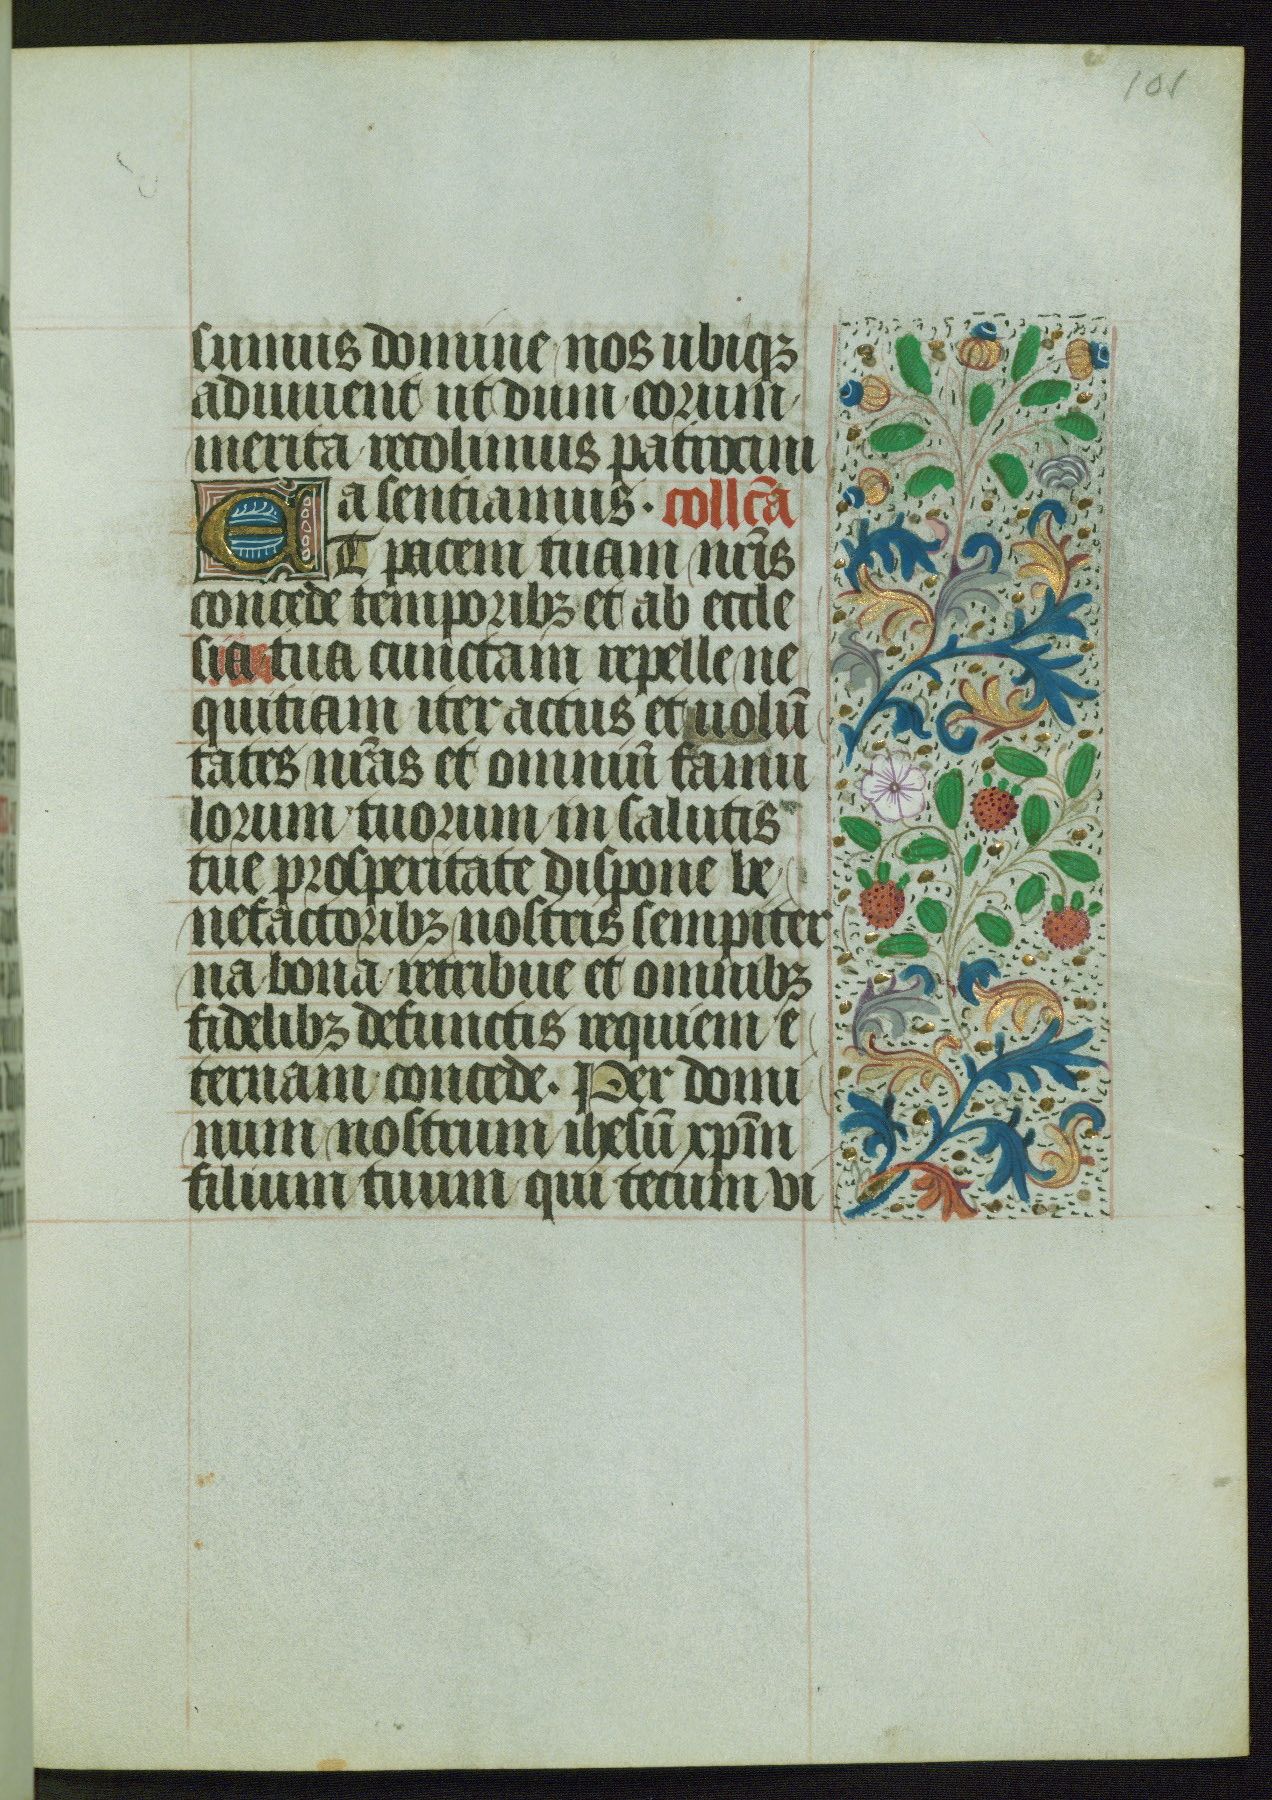 101
sumus domine nos ubiqꝫ
adiuuent ut dum eorum
merita recolimus patrocini
a sentiamus. collc̄a
ET pacem tuam nr̄is
concede temporibꝫ et ab eccle
sia tua cunctam repelle ne
quitiam iter actus et uolū
tates nr̄as et omniū famu
lorum tuorum in salutis
tue prosperitate dispone be
nefactoribꝫ nostris sempiter
na bona retribue et omnibꝫ
fidelibꝫ defunctis requiem e
ternam concede. Per domi
num nostrum ihesū xp̄m
filium tuum qui tecum vi